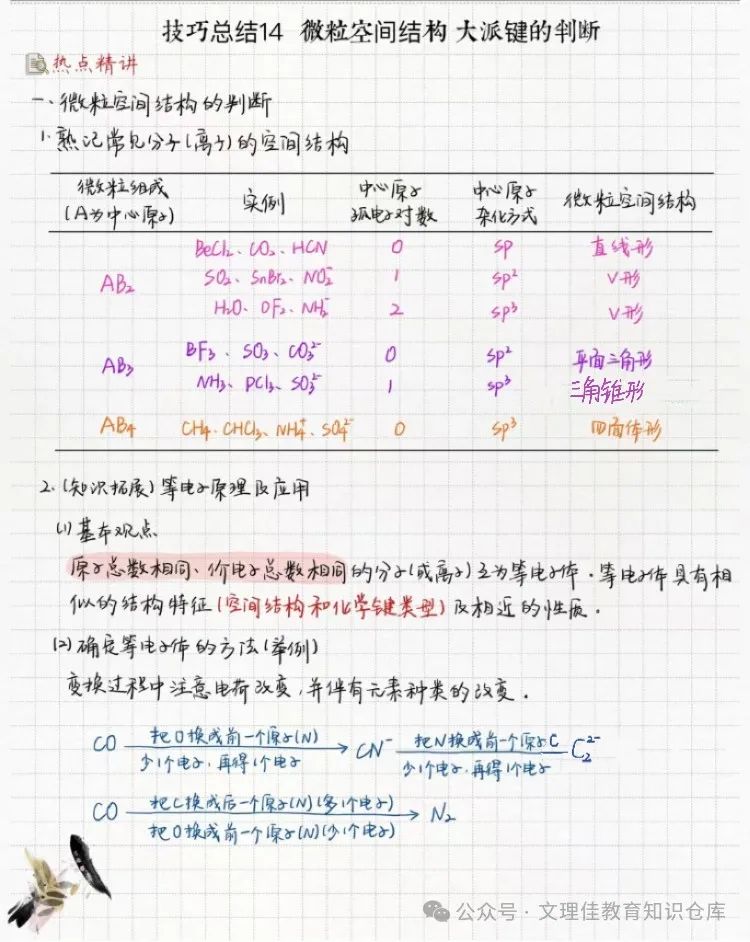 技巧总结14 微粒空间结构 大派键的判断
热点精讲
一、微粒空间结构的判断
1. 熟记常见分子(离子)的空间结构
微粒组成(A为中心原子) 实例 中心原子孤电子对数 中心原子杂化方式 微粒空间结构
AB₂ BeCl₂、CO₂、HCN 0 sp 直线形
SO₂、SnBr₂、NO₂⁻ 1 sp² V形
H₂O、OF₂、NH₂⁻ 2 sp³ V形
AB₃ BF₃、SO₃、CO₃²⁻ 0 sp² 平面三角形
NH₃、PCl₃、SO₃²⁻ 1 sp³ 三角锥形
AB₄ CH₄、CHCl₃、NH₄⁺、SO₄²⁻ 0 sp³ 四面体形
2. (知识拓展) 等电子原理及应用
(1) 基本观点
原子总数相同、价电子总数相同的分子(或离子)互为等电子体。等电子体具有相
似的结构特征(空间结构和化学键类型)及相近的性质。
(2) 确定等电子体的方法(举例)
变换过程中注意电荷改变,并伴有元素种类的改变。
CO 把O换成前一个原子(N) 少1个电子,再得1个电子 CN⁻ 把N换成前一个原子C 少1个电子,再得1个电子 C₂²⁻
CO 把C换成后一个原子(N)(多1个电子) 把O换成前一个原子(N)(少1个电子) N₂
公众号·文理佳教育知识仓库